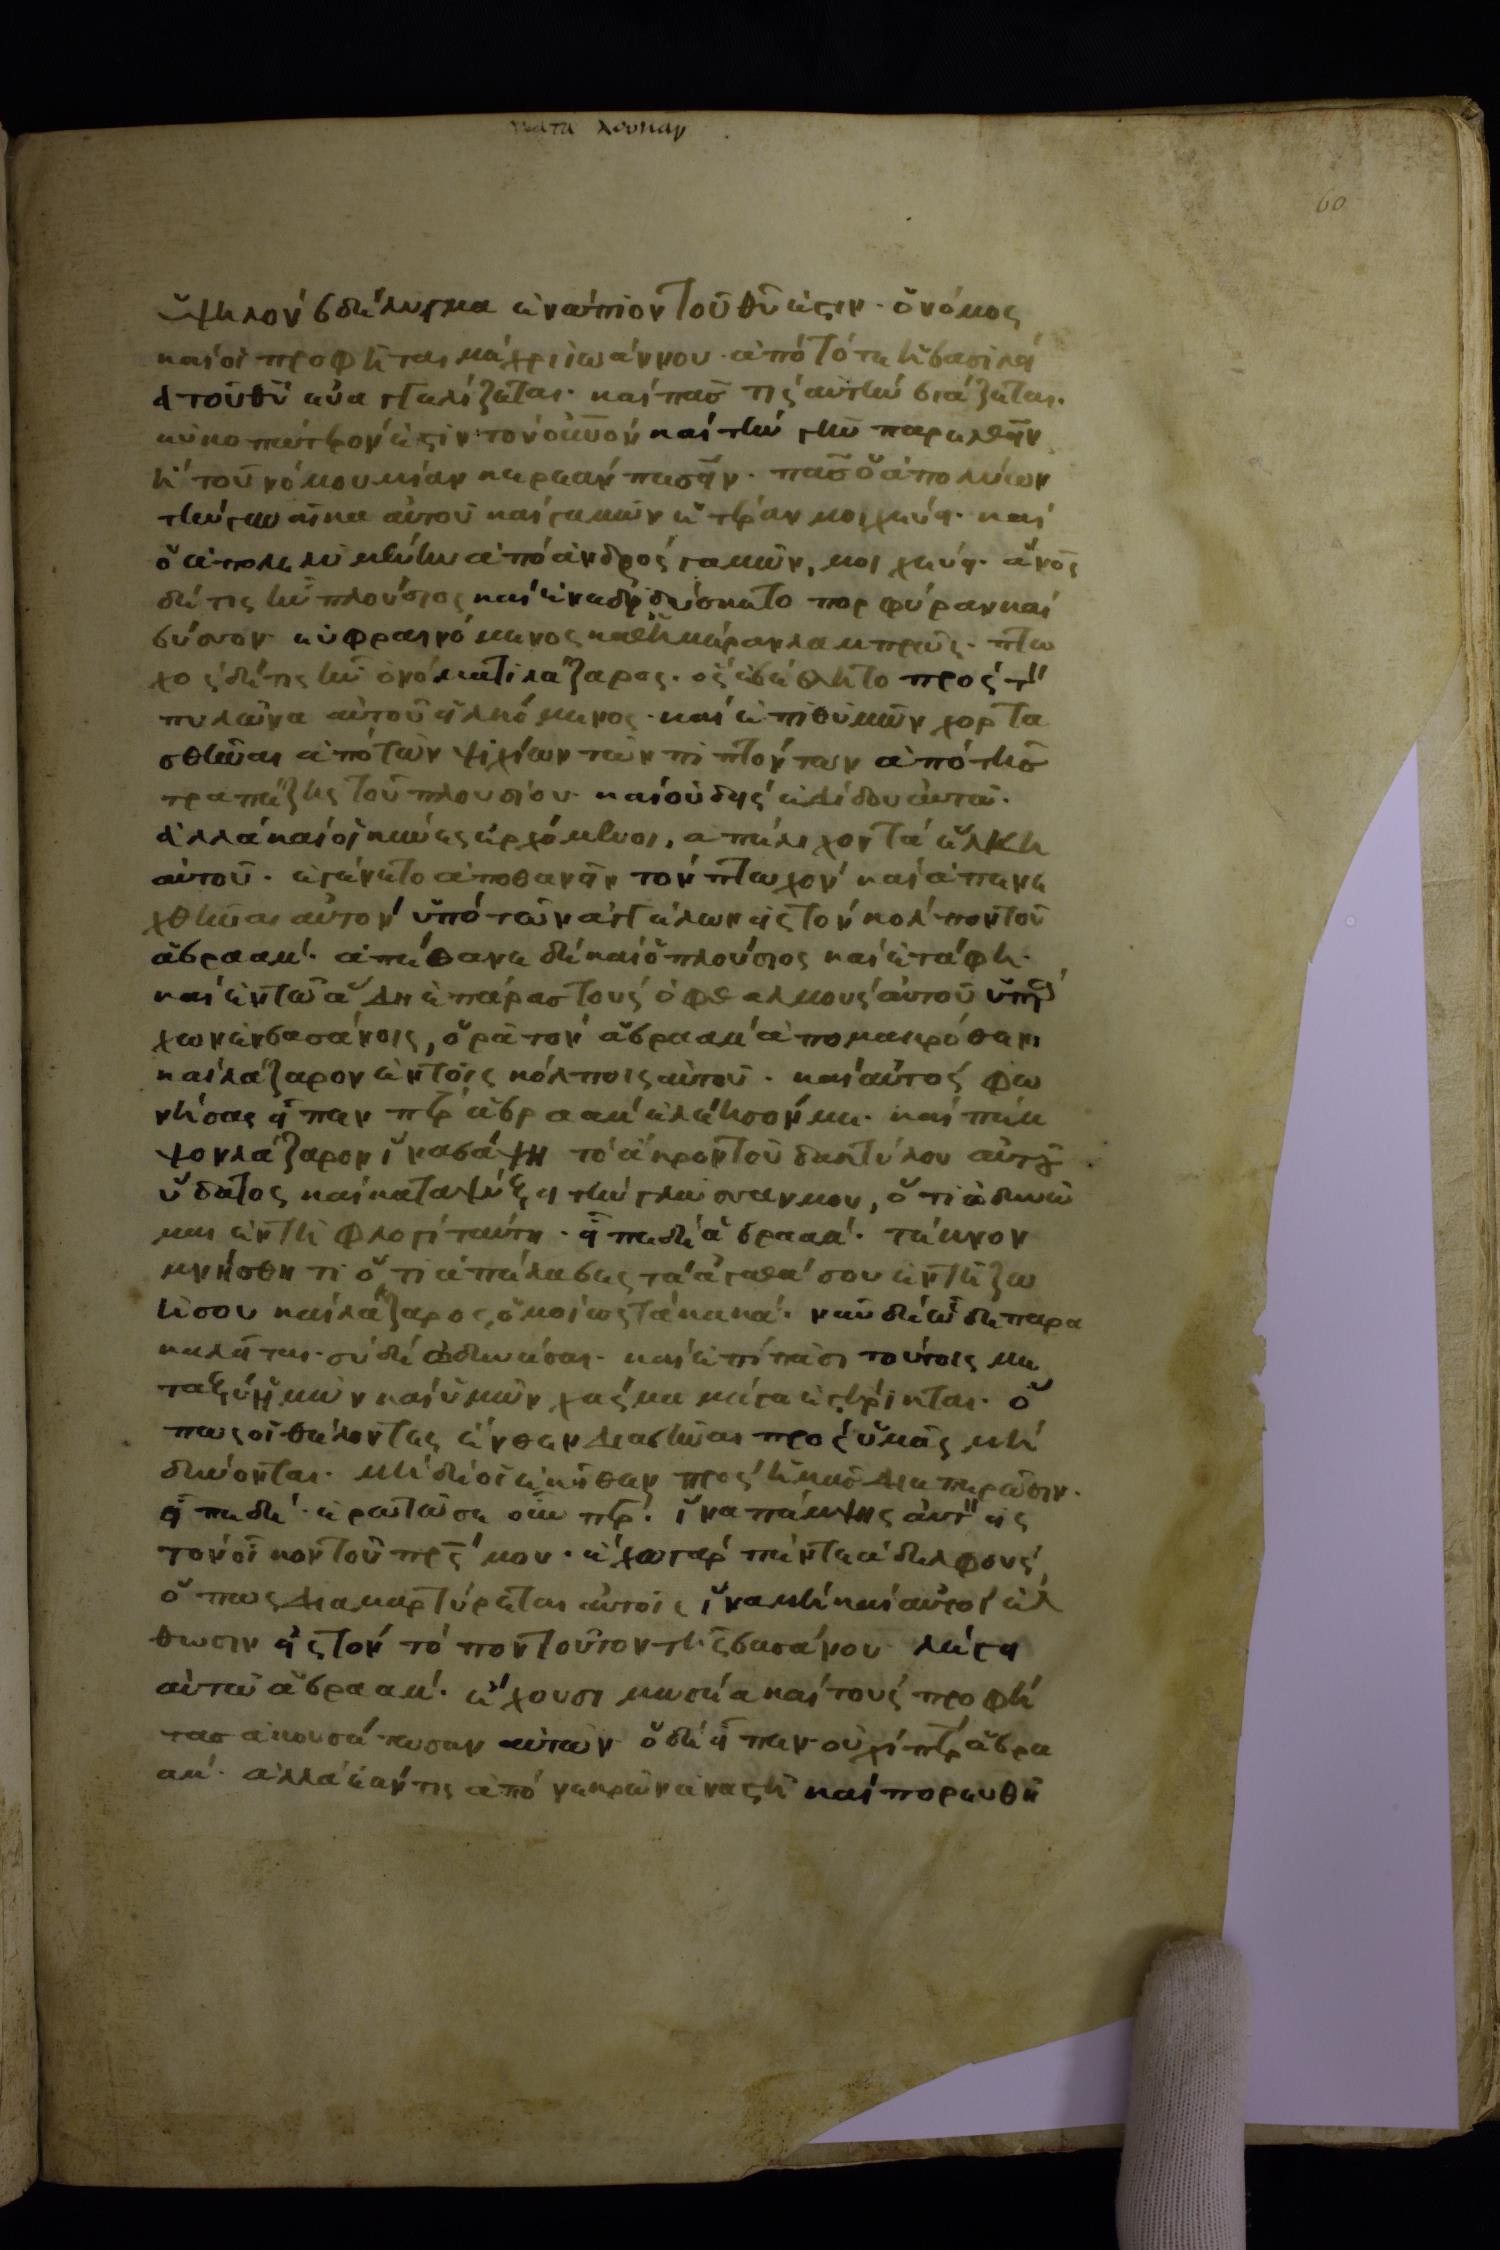 κατα λουκαν
60
ὑψηλὸν βδέλυγμα ἐνώπιον τοῦ θυ ἐστιν· ὁ νόμος
καὶ οἱ προφῆται μέχρι ἰωάννου· ἀπὸ τότε ἡ βασιλεί
α τοῦ θυ εὐαγγελίζεται· καὶ πᾶσ τις αὐτὴν βιάζεται·
εὐκοπώτερον ἐστὶν τὸν οὐνον καὶ τὴν γὴν παρελθεῖν
ἢ τοῦ νόμου μίαν κεραιαν πεσεῖν· πᾶσ ὁ ἀπολύων
τὴν γυναῖκα αὐτοῦ καὶ γαμῶν ἑτέραν μοιχεύει· καὶ
ὁ ἀπολελυμένην ἀπὸ ἀνδρὸς γαμῶν, μοιχεύει· ἄνος
δέ τις ἦν πλούσιος καὶ ἐνεδιδύσκετο πορφύραν καὶ
βύσσον· εὐφραινόμενος καθημέραν λαμπρῶς· πτω
χὸς δέ τις ἦν ὀνόματι λάζαρος· ὃς ἐβέβλητο πρὸς τὸν
πυλῶνα αὐτοῦ εἱλκόμενος· καὶ ἐπιθυμῶν χορτα
σθῆναι ἀπὸ τῶν ψιχίων τῶν πιπτόντων ἀπὸ τῆσ
τραπέζης τοῦ πλουσίου· καὶ οὐδεὶς ἐδίδου αὐτῶ·
ἀλλὰ καὶ οἱ κύνες ἐρχόμενοι, απέλειχον τὰ ἕλκη
αὐτοῦ· ἐγένετο ἀποθανεῖν τὸν πτωχὸν καὶ ἀπενε
χθῆναι αὐτὸν ὑπὸ τῶν ἀγγέλων εἰς τὸν κόλπον τοῦ
ἀβραάμ· ἀπέθανε δὲ καὶ ὁ πλούσιος καὶ ἐτάφη·
καὶ ἐν τῶ ἅδη ἐπάρασ τοὺς ὀφθαλμοὺς αὐτοῦ ὑπάρ
χων ἐν βασάνοις, ὁρᾶ τὸν ἀβραὰμ ἀπο μακρόθεν
καὶ λάζαρον ἐν τοῖς κόλποις αὐτοῦ· καὶ αὐτὸς φω
νήσας εἶπεν περ ἀβραὰμ ἐλέησόν με· καὶ πέμ
ψον λάζαρον ἵνα βάψη τὸ ἄκρον τοῦ δακτύλου αὐτοῦ
ὕδατος καὶ καταψύξει τὴν γλῶσσαν μου, ὅτι ὀδυνῶ
μαι ἐν τῆ φλογὶ ταύτη· εἶπε δὲ ἀβραάμ· τέκνον
μνήσθητι ὅτι ἀπέλαβες τὰ ἀγαθά σου ἐν τῆ ζω
ῆ σου καὶ λάζαρος ὁμοίως τὰ κακά· νῦν δὲ ὧδε παρα
καλεῖται· σὺ δὲ ὀδυνᾶσαι· καὶ ἐπὶ πᾶσι τούτοις με
ταξὺ ἡμῶν καὶ ὑμῶν χάσμα μέγα ἐστήρικται· ὅ
πως οἱ θέλοντες ἔνθεν διαβῆναι πρὸς ὑμᾶς μὴ
δύνονται· μὴ δὲ οἱ ἐκεῖθεν πρὸς ἡμᾶσ διαπερῶσιν·
εἶπε δὲ· ἐρωτῶ σε οὖν περ· ἵνα πέμψης αὐτὸν εἰς
τὸν οἶκον τοῦ πρς μου· ἔχω γὰρ πέντε ἀδελφοὺς,
ὅπως διαμαρτύρεται αὐτοῖς ἵνα μὴ καὶ αὐτοὶ ἔλ
θωσιν εἰς τὸν τόπον τοῦτον τῆς βασάνου· λέγει
αὐτῶ ἀβραάμ· ἔχουσι μωσέα καὶ τοὺς προφή
τασ ἀκουσάτωσαν αὐτῶν· ὁ δὲ εἶπεν· οὐχὶ περ ἀβρα
άμ· ἀλλ' ἐάν τις ἀπὸ νεκρῶν ἀναστῆ καὶ πορευθῆ